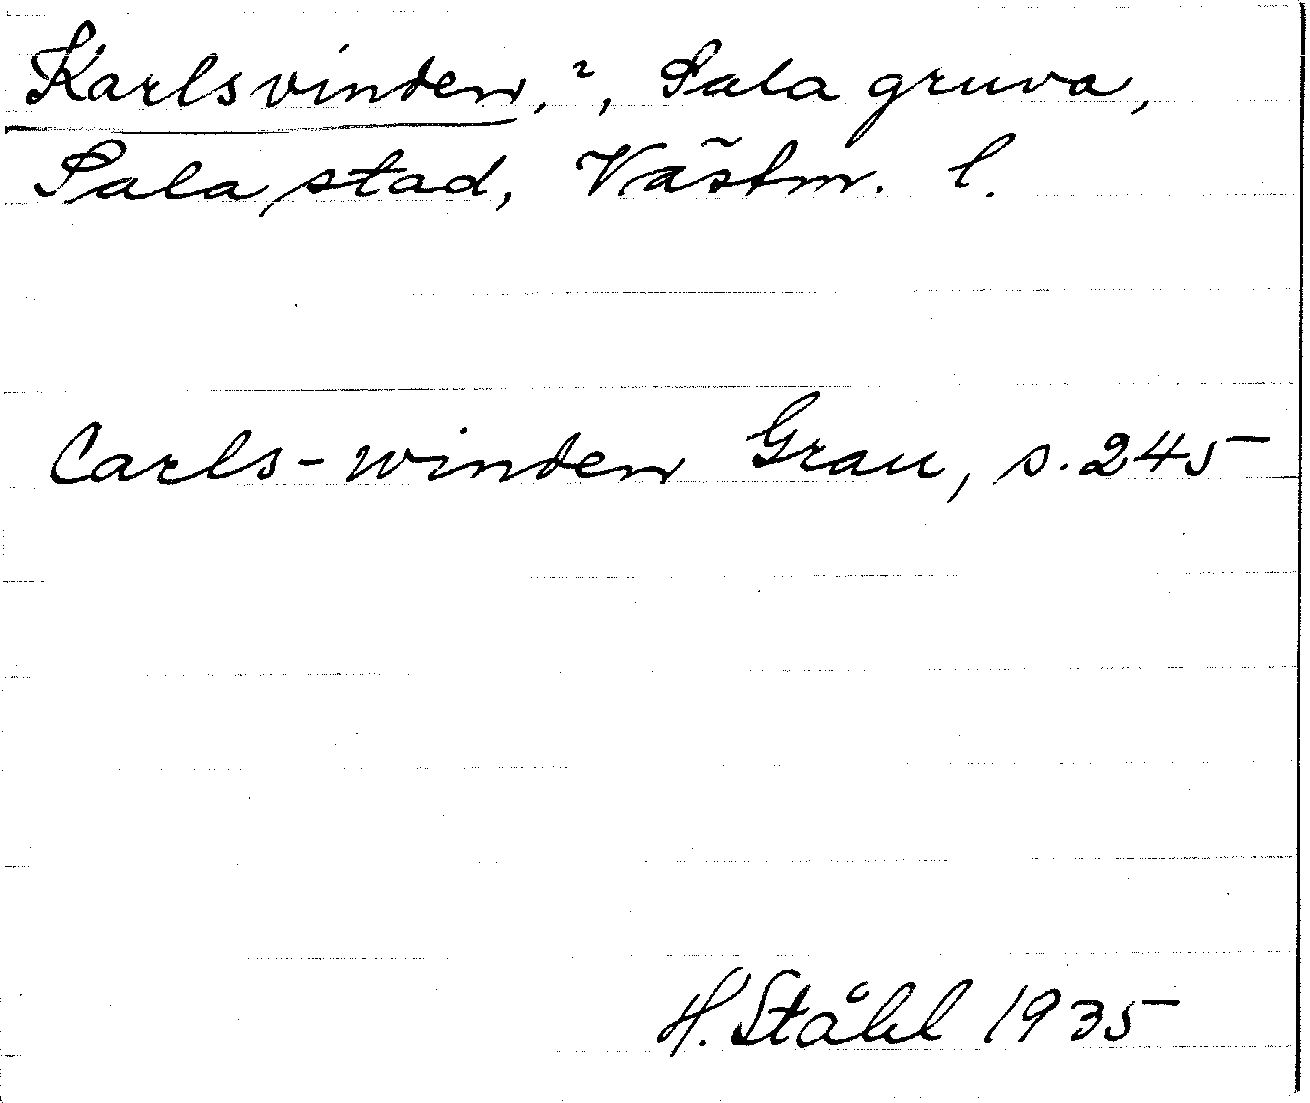 Karlsvinden, ?, Sala gruva,
Sala stad, Västm. l.
Carls-winden Grau, s. 245
H. Ståhl 1935